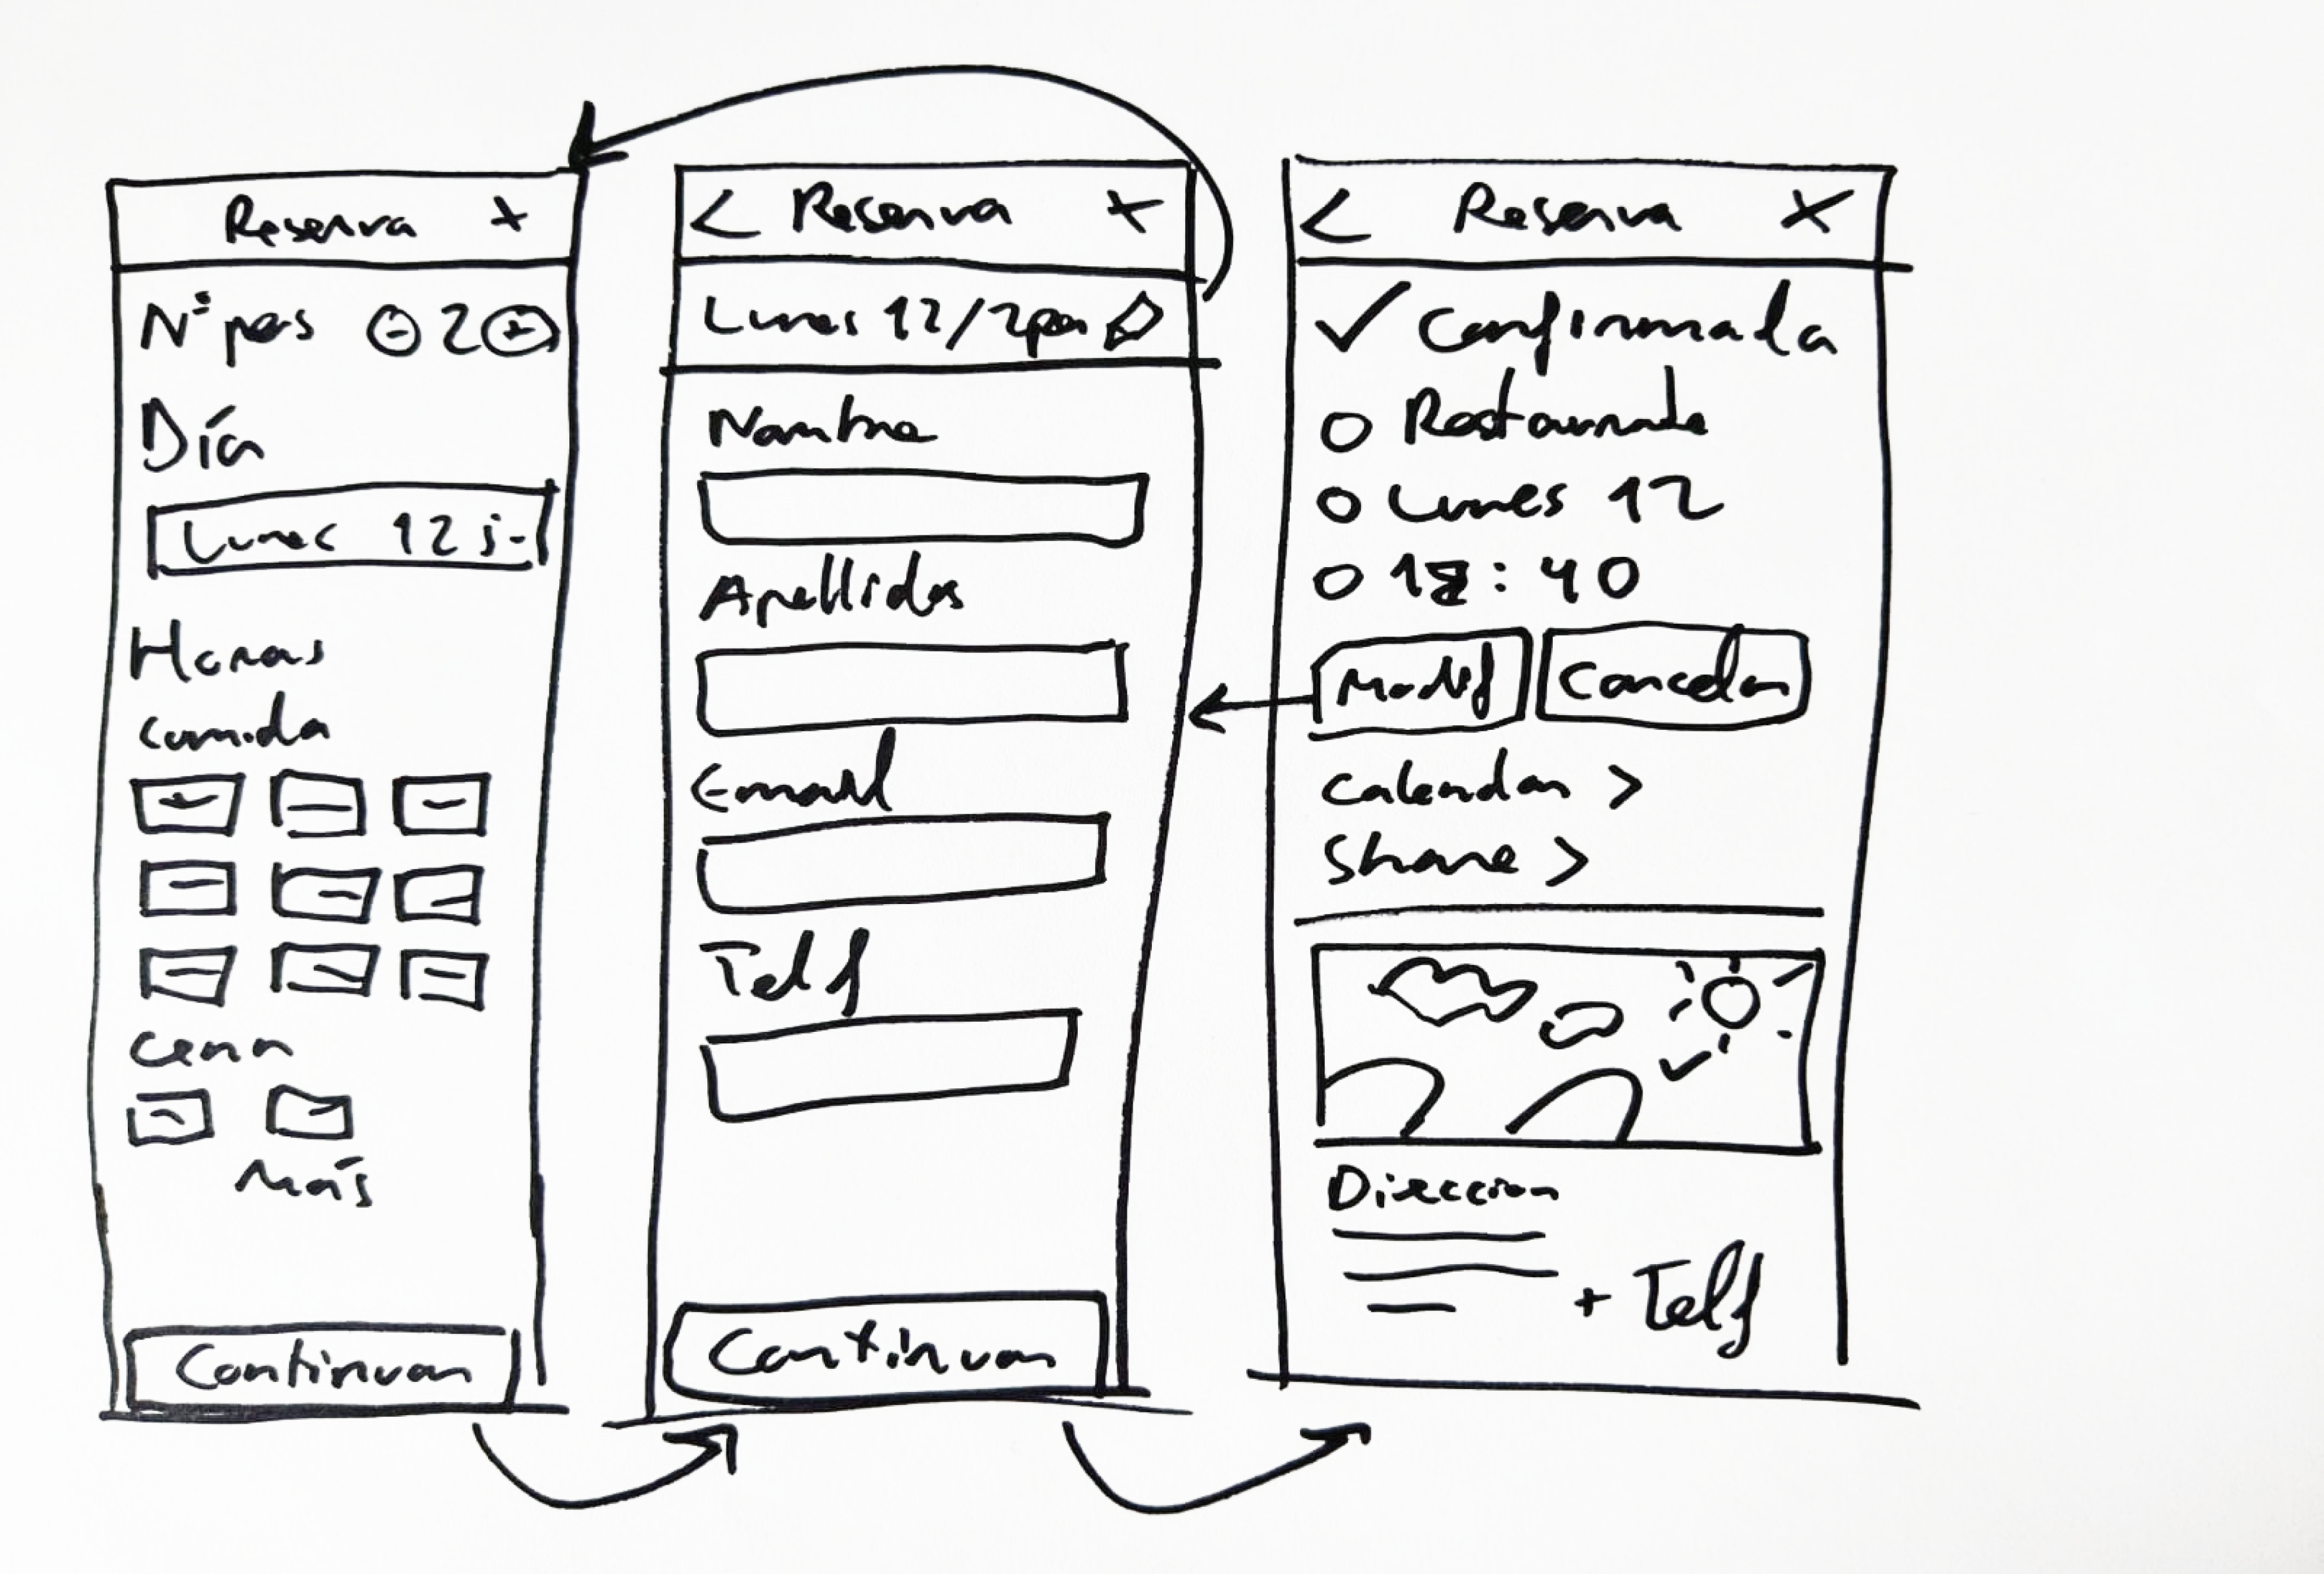 Reserva x
Nº pers - 2 +
Día
Lunes 12 j-
Horas
comida
cena
más
Continuar
< Reserva x
Lunes 12/2per
Nombre
Apellidos
Email
Telf
Continuar
< Reserva X
✓ Confirmada
Restaurante
Lunes 12
:40
Modif Cancelar
Calendar >
Share >
Direccion
+ Telf